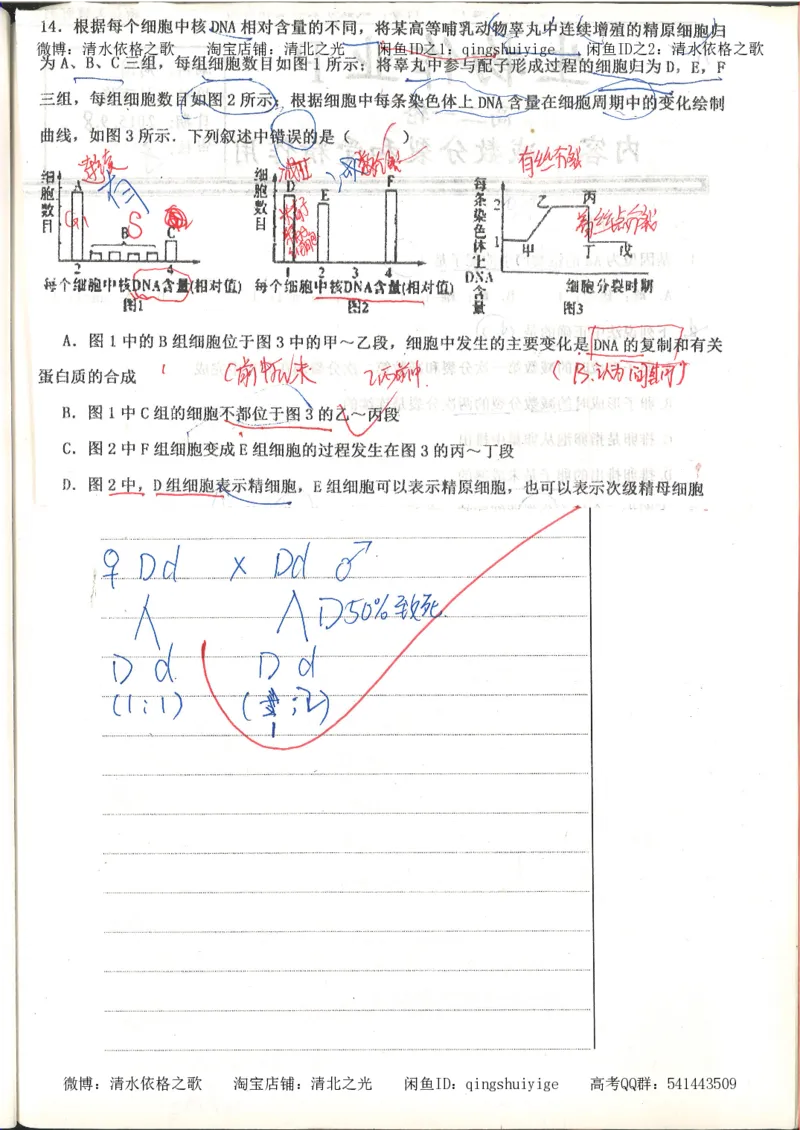 14．根据每个细胞中核 DNA 相对含量的不同，将某高等哺乳动物睾丸中连续增殖的精原细胞归
微博：清水依格之歌 淘宝店铺：清北之光 闲鱼ID之1：qingshuiyige 闲鱼ID之2：清水依格之歌
为 A、B、C 三组，每组细胞数目如图 1 所示；将睾丸中参与配子形成过程的细胞归为 D，E，F
三组，每组细胞数目如图 2 所示；根据细胞中每条染色体上 DNA 含量在细胞周期中的变化绘制
曲线，如图 3 所示．下列叙述中错误的是（ ）
有丝分裂
细胞数目
A
G1
B
S
C
2 4
每个细胞中核DNA含量(相对值)
图1
细胞数目
D
E
F
1 2 3 4
每个细胞中核DNA含量(相对值)
图2
每条染色体上DNA含量
2
1
甲
乙
丙
丁
戊
细胞分裂时期
图3
A．图 1 中的 B 组细胞位于图 3 中的甲～乙段，细胞中发生的主要变化是 DNA 的复制和有关
蛋白质的合成
C前中后末
乙丙前中
B．图 1 中 C 组的细胞不都位于图 3 的乙～丙段
C．图 2 中 F 组细胞变成 E 组细胞的过程发生在图 3 的丙～丁段
D．图 2 中，D 组细胞表示精细胞，E 组细胞可以表示精原细胞，也可以表示次级精母细胞
♀ Dd × Dd ♂
D50%致死
D d D d
(1:1) ( 1 :2)
微博：清水依格之歌 淘宝店铺：清北之光 闲鱼ID：qingshuiyige 高考QQ群：541443509